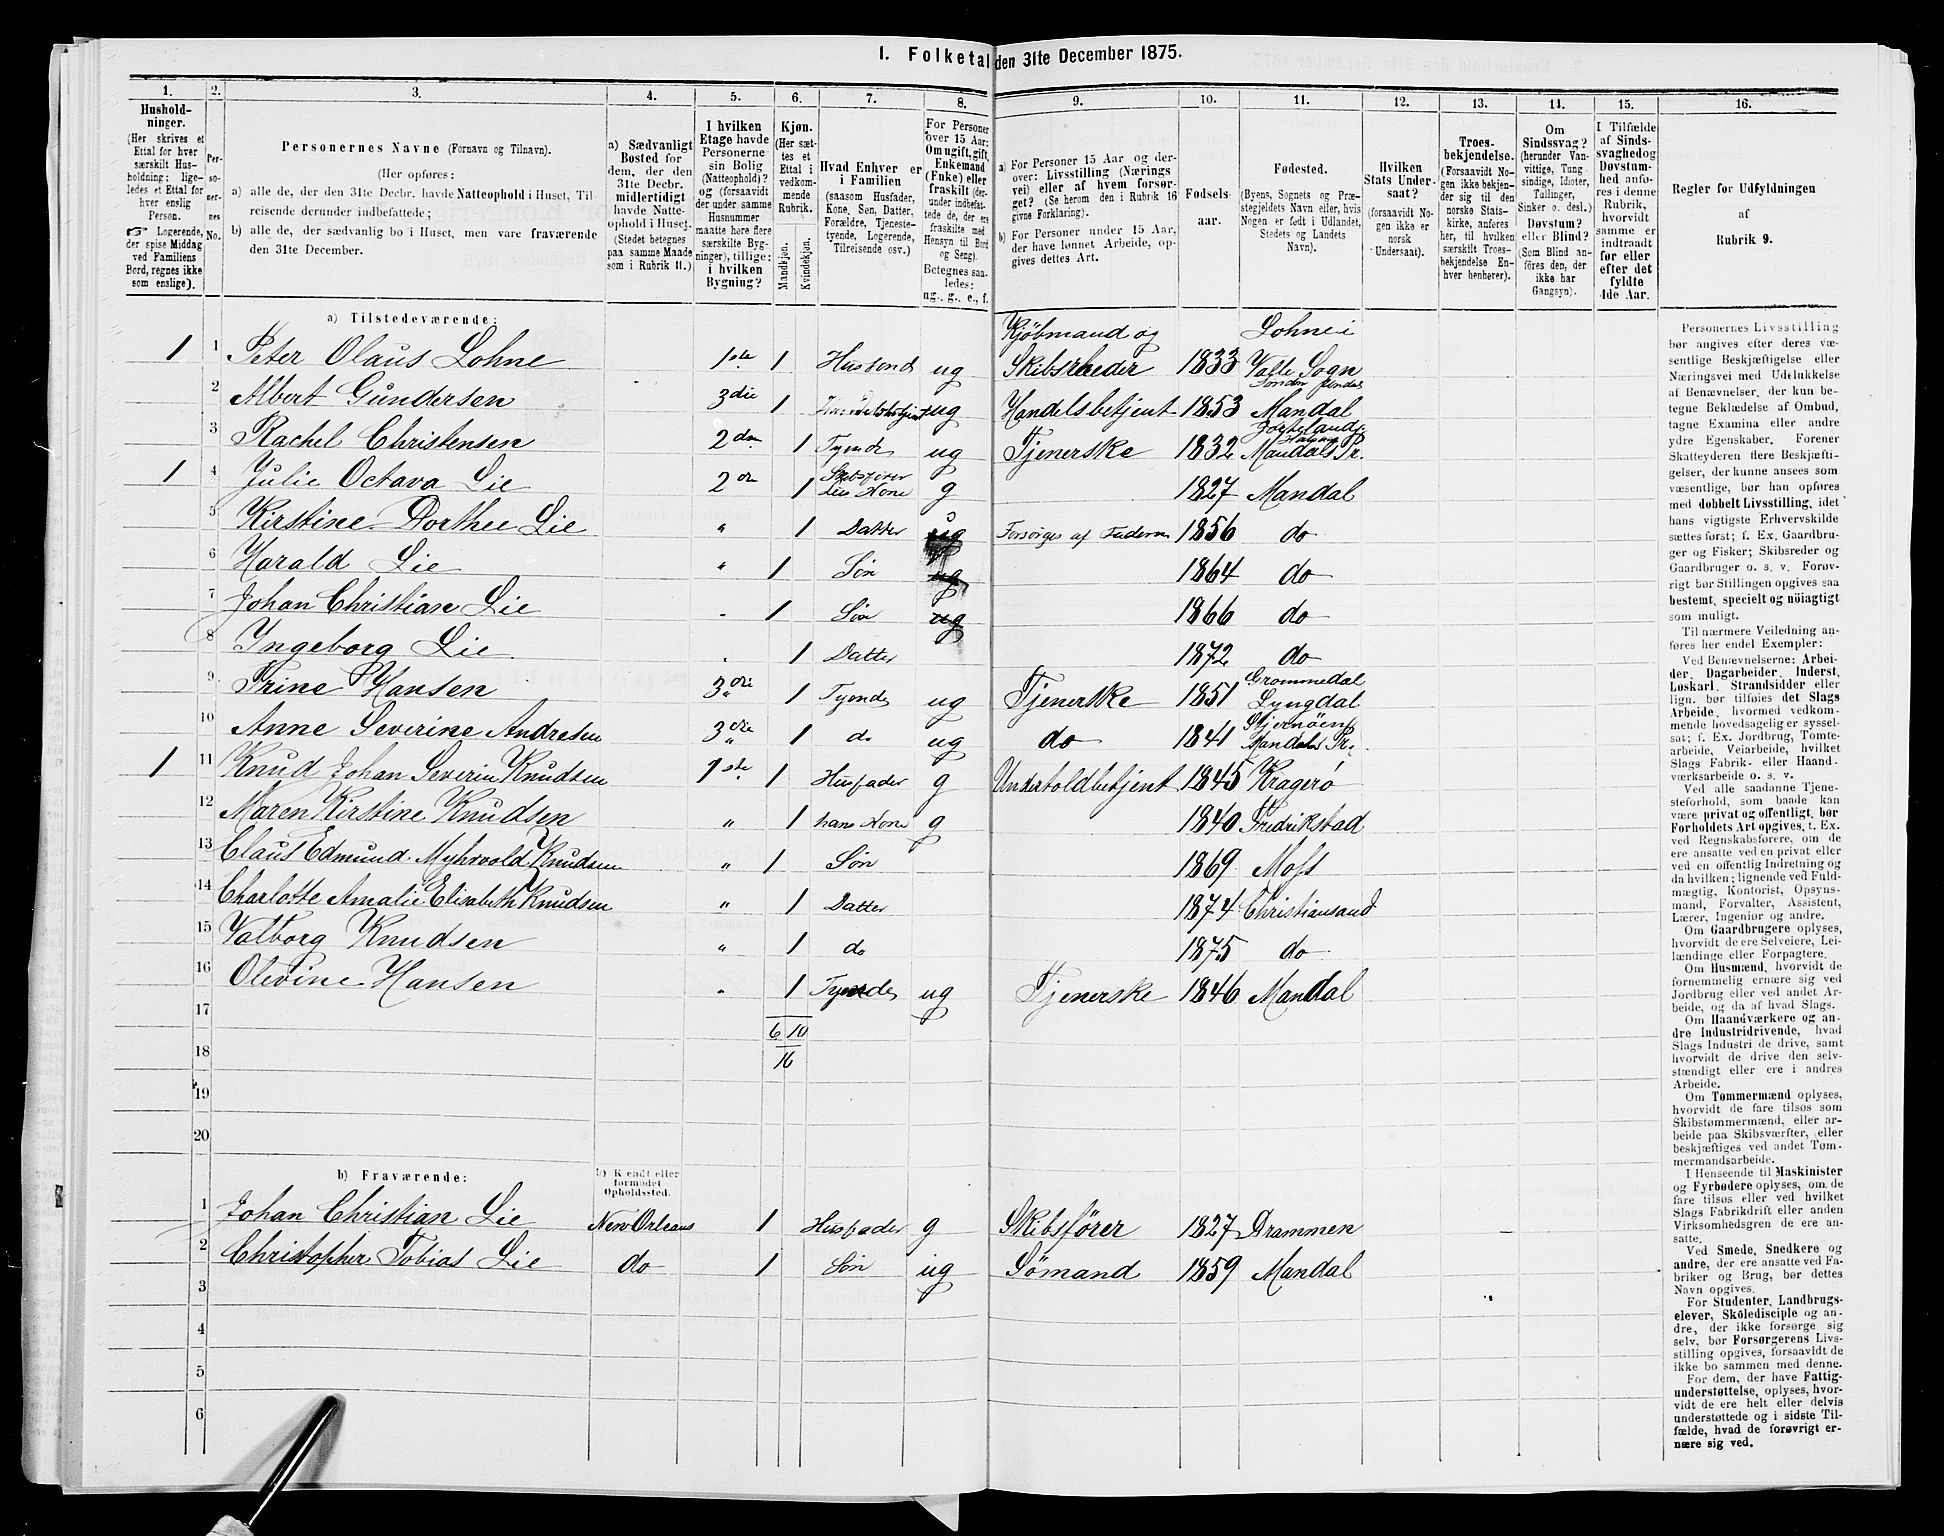 1. Folketal den 31te December 1875.
1. 2. 3. 4. 5. 6. 7. 8. 9. 10. 11. 12. 13. 14. 15. 16.
Hushold-
ninger.
(Her skrives et
Ettal for hver
særskilt Hus-
holdning; lige-
ledes et Ettal for
hver enslig
Person.
☞ Logerende,
der spise Middag
ved Familiens
Bord, regnes ikke
som enslige).
Per-
so-
ner-
nes
No.
Personernes Navne (Fornavn og Tilnavn).
(Her opføres:
a) alle de, der den 31te Decbr. havde Natteophold i Huset, Til-
reisende derunder indbefattede;
b) alle de, der sædvanlig bo i Huset, men vare fraværende
den 31te December.
a) Sædvanligt
Bosted for
dem, der den
31te Decbr.
midlertidigt
havde Natte-
ophold i Huset.
(Stedet betegnes
paa samme Maade
som i Rubrik 11.)
I hvilken
Etage havde
Personerne
sin Bolig
(Natteophold)?
og (forsaavidt
der under samme
Husnummer
maatte høre flere
særskilte Byg-
ninger), tillige:
i hvilken
Bygning?
Kjøn.
(Her sæt-
tes et
Ettal i
vedkom-
mende
Rubrik.
Mandkjøn.
Kvindekjøn.
Hvad Enhver er
i Familien
(saasom Husfader,
Kone, Søn, Datter,
Forældre, Tjeneste-
tyende, Logerende,
Tilreisende osv.)
For Personer
over 15 Aar:
Om ugift, gift,
Enkemand
(Enke) eller
fraskilt (der-
under indbefat-
tede de, der ere
fraskilte med
Hensyn til Bord
og Seng).
Betegnes saa-
ledes:
ug., g., e., f.
a) For Personer 15 Aar og der-
over: Livsstilling (Nærings
vei) eller af hvem forsør-
get? (Se herom den i Rubrik 16
givne Forklaring.)
b) For Personer under 15 Aar,
der have lønnet Arbeide, op-
gives dettes Art.
Fødsels-
aar.
Fødested.
(Byens, Sognets og Præ-
stegjeldets Navn eller, hvis
Nogen er født i Udlandet,
Stedets og Landets
Navn).
Hvilken
Stats Under-
saat?
(forsaavidt No-
gen ikke er
norsk
Undersaat).
Troes-
bekjendelse.
(Forsaavidt No-
gen ikke bekjen-
der sig til den
norske Stats-
kirke, anføres
her, til hvilken
særskilt Troes-
bekjendelse En-
hver henhører).
Om
Sindssvag?
(herunder Van-
vittige, Tung-
sindige, Idioter,
Tullinger,
Sinker o. desl.)
Døvstum?
eller Blind?
(Som Blind an-
føres den, der
ikke har
Gangsyn).
I Tilfælde
af Sinds-
svaghed og
Døvstum-
hed anfø-
res i denne
Rubrik,
hvorvidt
samme er
indtraadt
før eller
efter det
fyldte
4de Aar.
Regler for Udfyldningen
af
Rubrik 9.
a) Tilstedeværende:
1 1 Peter Olaus Lohne 1ste 1 Husbond ug Kjöbmand og Skibsrheder 1833 Lohne i Valle Sogn
2 Albert Gundersen 3die 1 ug Handelsbetjent 1853 Mandal
3 Rachel Christensen 2den 1 Tyende ug Tjenerske 1832 Mandals Pr.
1 4 Julie Octava Lie 2den 1 Skibsförer Lies Kone g 1827 Mandal
5 Kirstine Dorthee Lie " 1 Datter ug Forsörges af Faderen 1856 do
6 Harald Lie " 1 Sön ug 1864 do
7 Johan Christian Lie 1 Sön ug 1866 do
8 Ingeborg Lie 1 Datter 1872 do
9 Trine Hansen 3die 1 Tyende ug Tjenerske 1851 Lyngdal
10 Anne Severine Andresen 3die 1 do ug do 1841 Mandals Pr.
1 11 Knud Johan Severin Knudsen 1ste 1 Husfader g Underholdbetjent 1845 Kragerö
12 Maren Kirstine Knudsen " 1 hans Kone g 1840 Fredrikstad
13 Claus Edmund Myhrvold Knudsen " 1 Sön 1869 Moss
14 Charlotte Amalie Elisabeth Knudsen " 1 Datter 1874 Christiansand
15 Valborg Knudsen " 1 do 1875 do
16 Olevine Hansen " 1 Tyende ug Tjenerske 1846 Mandal
17 6 10
18 16
19
20
b) Fraværende:
b) Kjendt eller
formodet
Opholdssted.
1 Johan Christian Lie New Orleans 1 Husfader g Skibsförer 1827 Drammen
2 Christopher Tobias Lie do 1 Sön ug Sömand 1859 Mandal
3
4
5
6
Personernes Livsstilling
bør angives efter deres væ-
sentlige Beskjæftigelse eller
Næringsvei med Udelukkelse
af Benævnelser, der kun be-
tegne Beklædelse af Ombud,
tagne Examina eller andre
ydre Egenskaber. Forener
Skatteyderen flere Beskjæfti-
gelser, der kunne ansees som
væsentlige, bør han opføres
med dobbelt Livsstilling, idet
hans vigtigste Erhvervskilde
sættes først; f. Ex. Gaardbru-
ger og Fisker; Skibsreder og
Gaardbruger o. s. v. Forøv-
rigt bør Stillingen opgives saa
bestemt, specielt og nöiagtigt
som muligt.
Til nærmere Veiledning an-
føres her endel Exempler:
Ved Benævnelserne: Arbei-
der, Dagarbeider, Inderst,
Løskarl, Strandsidder eller
lign. bør tilføies det Slags
Arbeide, hvormed vedkom-
mende hovedsagelig er syssel-
sat; f. Ex. Jordbrug, Tomte-
arbeide, Veiarbeide, hvilket
Slags Fabrik- eller Haand-
værksarbeide o. s. v.
Ved alle saadanne Tjene-
steforhold, som baade kan
være privat og offentligt, bør
Forholdets Art opgives, t. Ex.
ved Regnskabsførere, om de
ere ansatte ved en privat eller
ved en offentlig Indretning og
da hvilken; lignende ved Fuld-
mægtig, Kontorist, Opsyns-
mand, Forvalter, Assistent,
Lærer, Ingeniør og andre.
Om Gaardbrugere oplyses,
hvorvidt de ere Selveiere, Lei-
lændinge eller Forpagtere.
Om Husmænd, hvorvidt de
fornemmelig ernære sig ved
Jordbrug eller ved andet Ar-
beide, og da af hvad Slags.
Om Haandværkere og an-
dre Industridrivende, hvad
Slags Industri de drive, samt
hvorvidt de drive den selv-
stændigt eller ere i andres
Arbeide.
Om Tømmermænd oplyses,
hvorvidt de fare tilsøs som
Skibstømmermænd, eller ar-
beide paa Skibsværfter, eller
beskjæftiges ved andet Tøm-
mermandsarbeide.
I Henseende til Maskinister
og Fyrbødere oplyses, om de
fare tilsøs eller ved hvilket
Slags Fabrikdrift eller anden
Virksomhedsgren de ere an-
satte.
Ved Smede, Snedkere og
andre, der ere ansatte ved Fa-
briker og Brug, bør dettes
Navn opgives.
For Studenter, Landbrugs-
elever, Skoledisciple og an-
dre, der ikke forsørge sig
selv, bør Forsørgerens Livs-
stilling opgives, forsaavidt de
ikke bo sammen med denne.
For dem, der have Fattig-
understøttelse, oplyses, hvor-
vidt de ere helt eller delvis
understøttede og i sidste Til-
fælde, hvad de forøvrigt er-
nære sig ved.